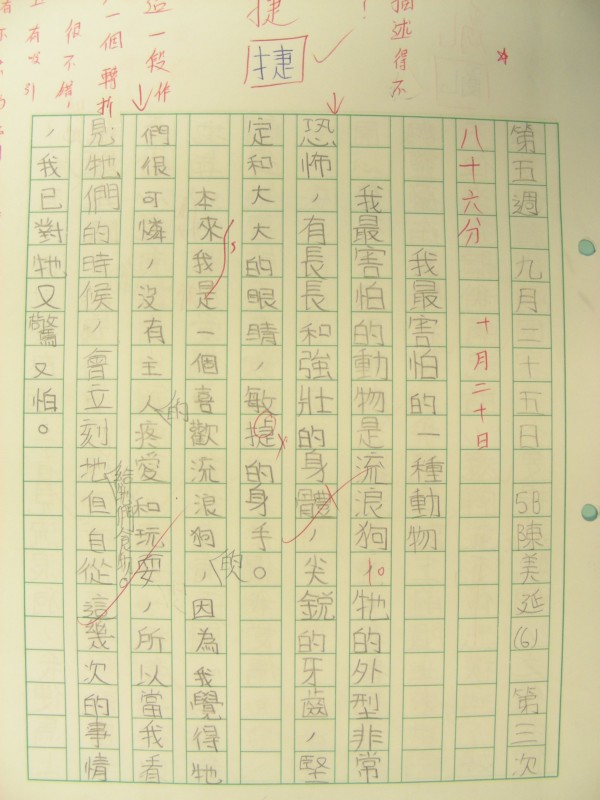 第五週 九月二十五日 5B陳美延(6) 第三次
八十六分 十月二十日
我最害怕的一種動物
我最害怕的動物是流浪狗。牠的外型非常
恐怖,有長長和強壯的身體,尖銳的牙齒,堅
定和大大的眼睛,敏捷的身手。
本來我是一個喜歡流浪狗的,因為我覺得牠
們很可憐,沒有主人的疼愛和玩耍,所以當我看
見牠們的時候,會立刻地給牠們食物。但自從這幾次的事情
,我已對牠又驚又怕。
捷
捷
描述得不
這一段作
一個轉折
很不錯,
有吸引